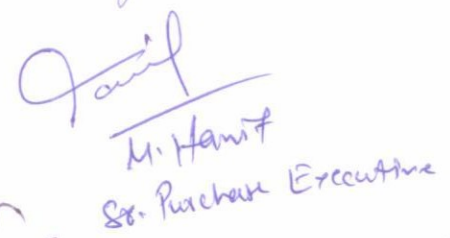 M. Hanif
Sr. Purchase Executive